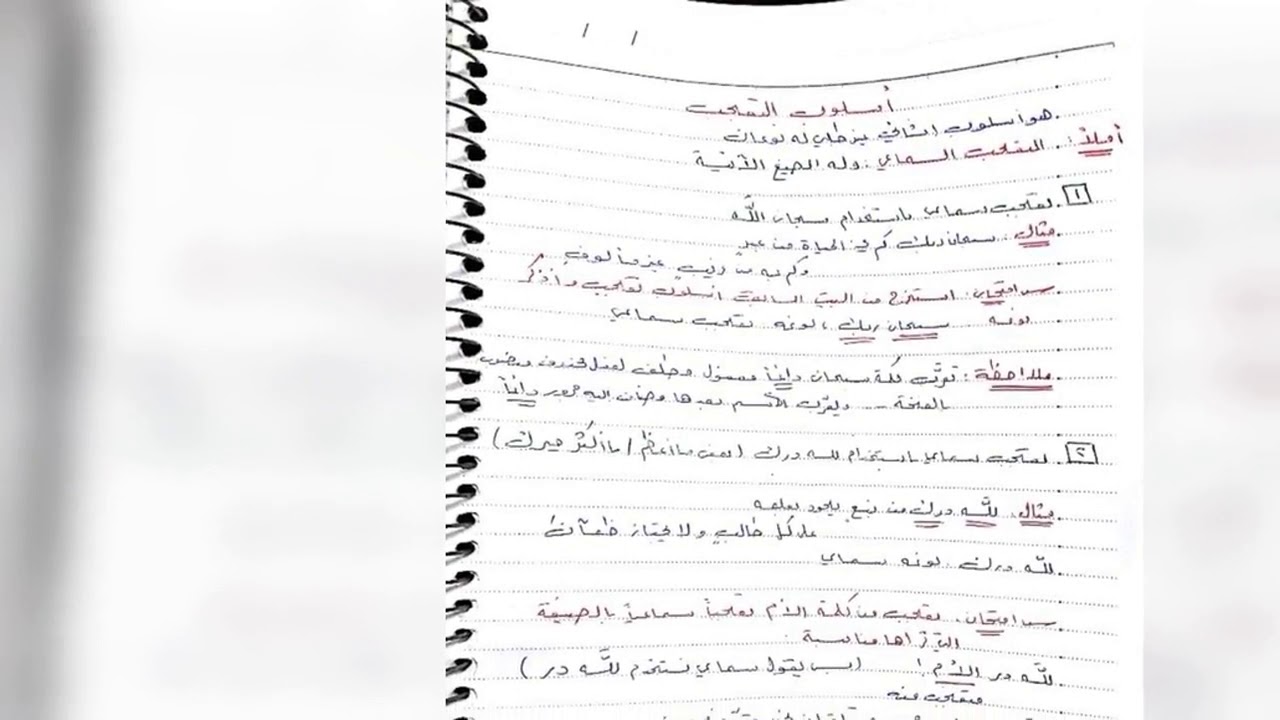 أسلوب التعجب
هو اسلوب انشائي غير طلبي له نوعان
أولاً: التعجب السماعي: وله الصيغ الآتية
١ التعجب سماعي باستخدام سبحان الله
مثال: سبحان ربك كم في الحياة من عبر
وكم به من غير مألوف
س امتحان: استخرج من البيت السابق اسلوب تعجب واذكر
نوعه سبحان ربك، نوعه تعجب سماعي
ملاحظة: تعرب كلمة سبحان دائماً مفعول مطلق لفعل محذوف منصوب
بالفتحة ... ويعرب الاسم بعدها مضاف اليه مجرور دائماً
٢ التعجب سماعي باستخدام لله درك (بمعنى ما اعظم / ما أكثر خيرك)
مثال: لله درك من نبع يجود بعلمه
على كل طالب ولا يجتاز ظمآن
لله درك نوعه سماعي
س امتحان: تعجب من كلمة الأم تعجباً سماعياً بالصيغة
التي تراها مناسبة
لله در الأم! (لما يقول سماعي نستخدم لله در)
متعجب منه